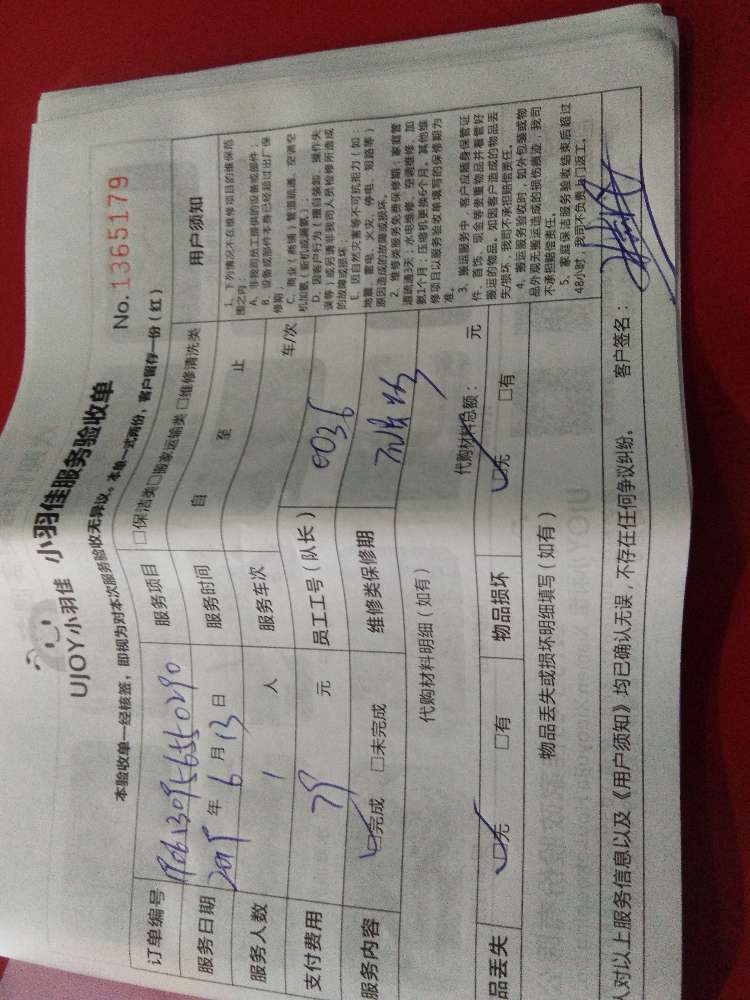 UJOY小羽佳 小羽佳服务验收单
No.1365179
本验收单一经核签，即视为对本次服务验收无异议。本单一式两份，客户留存一份（红）
订单编号
服务项目 □保洁类□搬家运输类 □维修清洗类
用户须知
服务日期 年 6 月 13 日
服务时间 自 至 止
服务人数 1 人
服务车次 车/次
支付费用 元
员工工号（队长） 0036
服务内容 □完成 □未完成
维修类保修期
代购材料明细（如有） 代购材料总额： 元
品丢失 □无 □有
物品损坏 □无 □有
物品丢失或损坏明细填写（如有）
1、下列情况不在维修项目的维保范
围之内：
A、非我司员工提供的设备或部件；
B、设备或部件本身已经超过出厂保
修期；
C、商业（商铺）管道疏通、空调空
机加氟（装机或漏氟）；
D、因客户行为（擅自装卸、操作失
误等）或另请非我司人员检修所造成
的故障或损坏；
E、因自然灾害等不可抗拒力（如：
地震、雷电、火灾、停电、短路等）
原因造成的故障或损坏。
2、维修类服务免费保修期：家庭管
道疏通3天；水电维修、空调维修、加
氟1个月；压缩机更换6个月。其他维
修项目以服务验收单填写的保修期为
准。
3、搬运服务中，客户应随身保管证
件、首饰、现金等贵重物品并看管好
搬运的物品。如因客户造成的物品丢
失/损坏，我司不承担赔偿责任。
4、搬运服务验收时，如外包装或物
品外观无搬运造成的损伤痕迹，我司
不承担赔偿责任。
5、家庭保洁服务验收结束后超过
48小时，我司不负责上门返工。
人对以上服务信息以及《用户须知》均已确认无误，不存在任何争议纠纷。 客户签名：